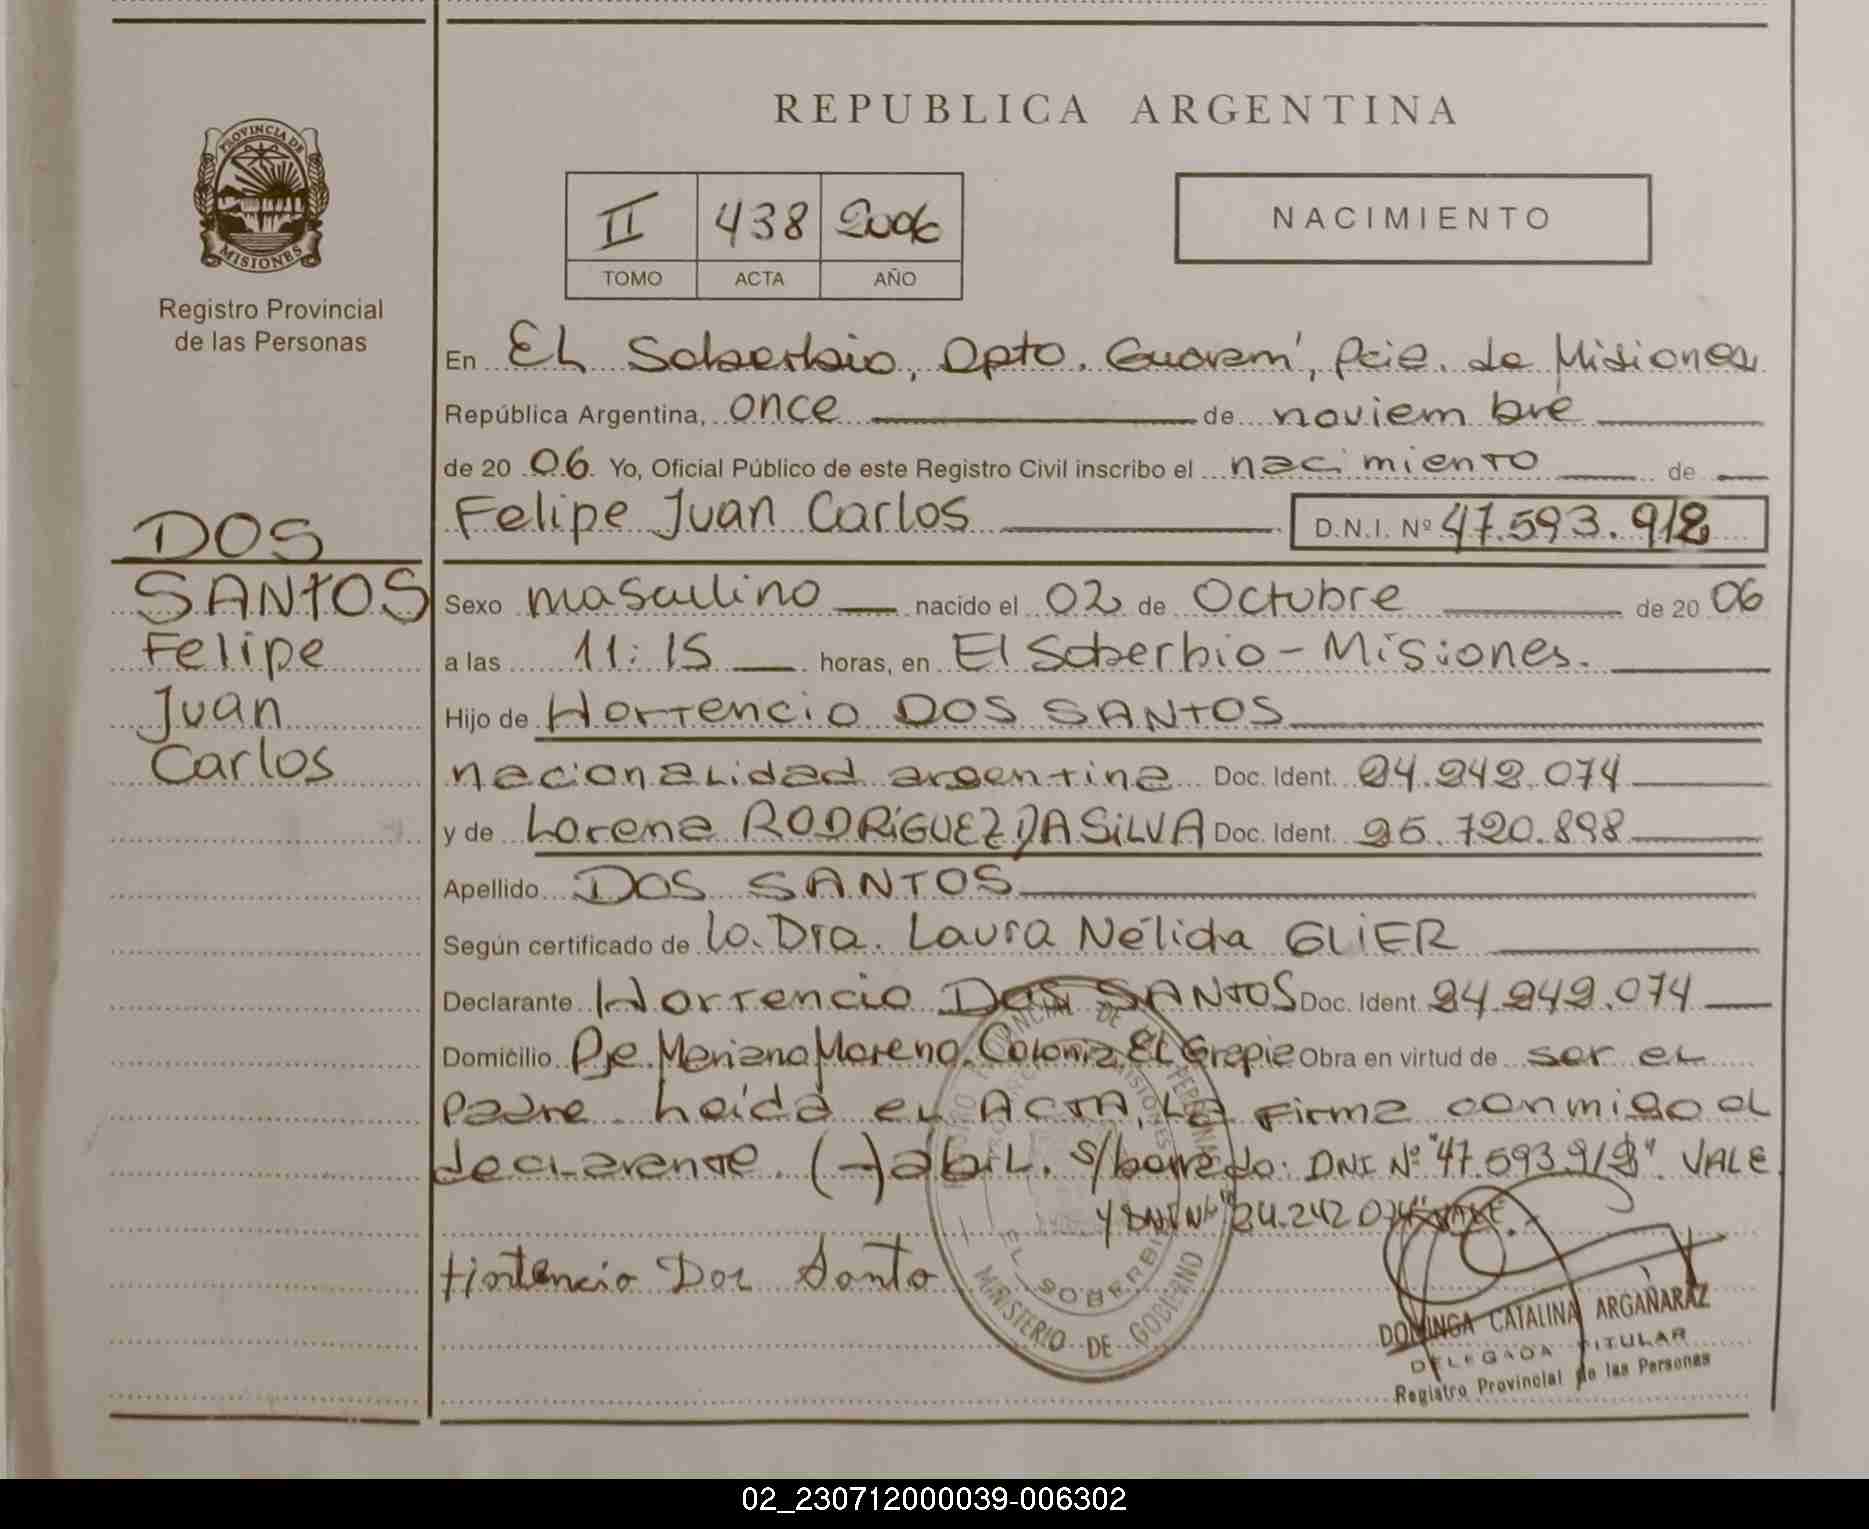 REPUBLICA ARGENTINA
PROVINCIA DE MISIONES
Registro Provincial
de las Personas
II 438 2006
TOMO ACTA AÑO
NACIMIENTO
En EL Soberbio, Dpto. Guaraní, Pcie. de Misiones
República Argentina, once de noviembre
de 20 06 Yo, Oficial Público de este Registro Civil inscribo el nacimiento de
Felipe Juan Carlos D.N.I. Nº 47.593.912
DOS
SANTOS
Felipe
Juan
Carlos
Sexo masculino nacido el 02 de Octubre de 20 06
a las 11:15 horas, en El Soberbio - Misiones.
Hijo de Hortencio DOS SANTOS
nacionalidad argentina Doc. Ident. 24.242.074
y de Lorena RODRÍGUEZ DA SILVA Doc. Ident. 26.720.898
Apellido DOS SANTOS
Según certificado de lo. Dra. Laura Nélida GLIER
Declarante Hortencio DOS SANTOS Doc. Ident. 24.242.074
Domicilio Pje. Mariano Moreno. Colonia EL Grapie Obra en virtud de ser el
Padre leída el ACTA, La Firma conmigo el
declarante. (-) ábil. s/borrado: DNI Nº "47.593.912" VALE
Y DNI Nº "24.242.074" VALE.-
Hortencio Dos Santo
EL SOBERBIO
MINISTERIO DE GOBIERNO
DOMINGA CATALINA ARGAÑARAZ
DELEGADA TITULAR
Registro Provincial de las Personas
02_230712000039-006302